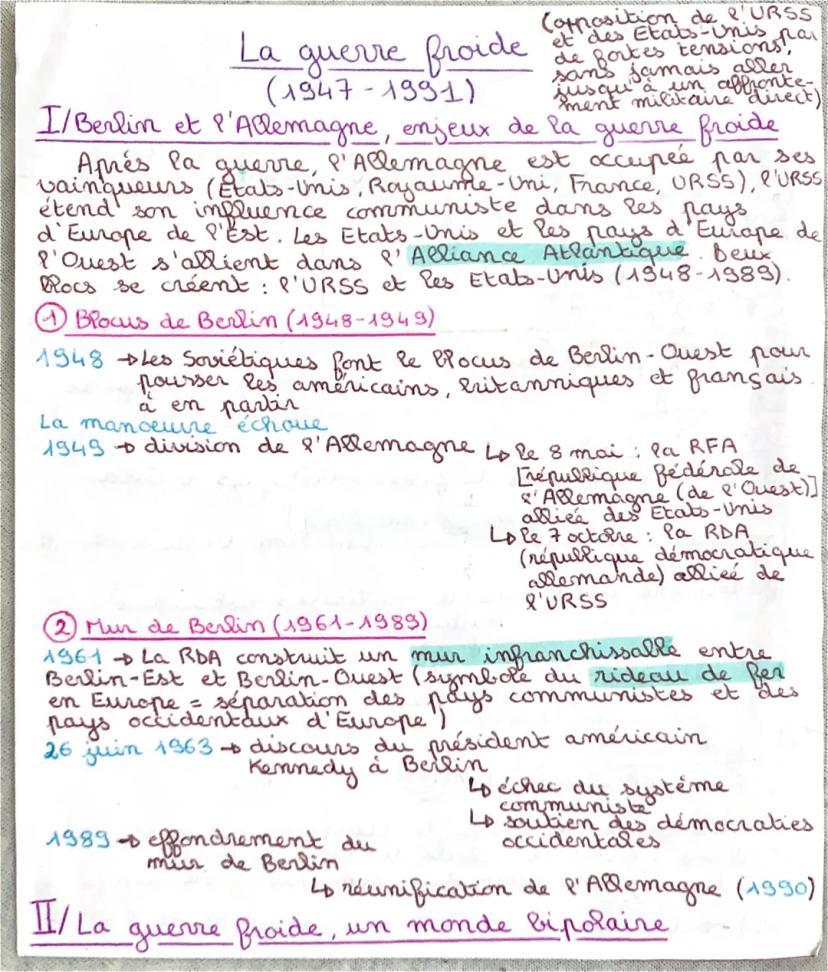 La guerre froide
(1947 - 1991)
(opposition de l'URSS
et des Etats-Unis par
de fortes tensions,
sans jamais aller
jusqu'à un affronte-
ment militaire direct)
I/ Berlin et l'Allemagne, enjeux de la guerre froide
Après la guerre, l'Allemagne est occupée par ses
vainqueurs (Etats-Unis, Royaume-Uni, France, URSS), l'URSS
étend son influence communiste dans les pays
d'Europe de l'Est. Les Etats-Unis et les pays d'Europe de
l'Ouest s'allient dans l'Alliance Atlantique. Deux
blocs se créent : l'URSS et les Etats-Unis (1948-1989).
① Blocus de Berlin (1948-1949)
1948 → Les Soviétiques font le blocus de Berlin-Ouest pour
pousser les américains, britanniques et français
à en partir
La manoeuvre échoue
1949 → division de l'Allemagne ↳ le 8 mai : la RFA
[république fédérale de
l'Allemagne (de l'Ouest)]
alliée des Etats-Unis
↳ le 7 octobre : la RDA
(république démocratique
allemande) alliée de
l'URSS
② Mur de Berlin (1961-1989)
1961 → La RDA construit un mur infranchissable entre
Berlin-Est et Berlin-Ouest (symbole du rideau de fer
en Europe = séparation des pays communistes et des
pays occidentaux d'Europe)
26 juin 1963 → discours du président américain
Kennedy à Berlin
↳ échec du système
communiste
↳ soutien des démocraties
occidentales
1989 → effondrement du
mur de Berlin
↳ réunification de l'Allemagne (1990)
II/ La guerre froide, un monde bipolaire